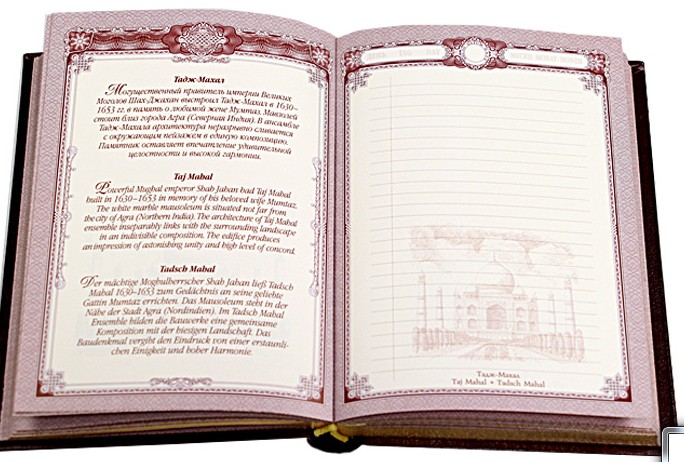 Тадж-Махал
Могущественный правитель империи Великих
Моголов Шах-Джахан выстроил Тадж-Махал в 1630–
1653 гг. в память о любимой жене Мумтаз. Мавзолей
стоит близ города Агра (Северная Индия). В ансамбле
Тадж-Махала архитектура неразрывно сливается
с окружающим пейзажем в единую композицию.
Памятник оставляет впечатление удивительной
целостности и высокой гармонии.
Taj Mahal
Powerful Mughal emperor Shah Jahan had Taj Mahal
built in 1630–1653 in memory of his beloved wife Mumtaz.
The white marble mausoleum is situated not far from
the city of Agra (Northern India). The architecture of Taj Mahal
ensemble inseparably links with the surrounding landscape
in an indivisible composition. The edifice produces
an impression of astonishing unity and high level of concord.
Tadsch Mahal
Der mächtige Moghulherrscher Shah Jahan ließ Tadsch
Mahal 1630–1653 zum Gedächtnis an seine geliebte
Gattin Mumtaz errichten. Das Mausoleum steht in der
Nähe der Stadt Agra (Nordindien). Im Tadsch Mahal
Ensemble bilden die Bauwerke eine gemeinsame
Komposition mit der hiesigen Landschaft. Das
Baudenkmal vergibt den Eindruck von einer erstaunli-
chen Einigkeit und hoher Harmonie.
Тадж-Махал
Taj Mahal • Tadsch Mahal